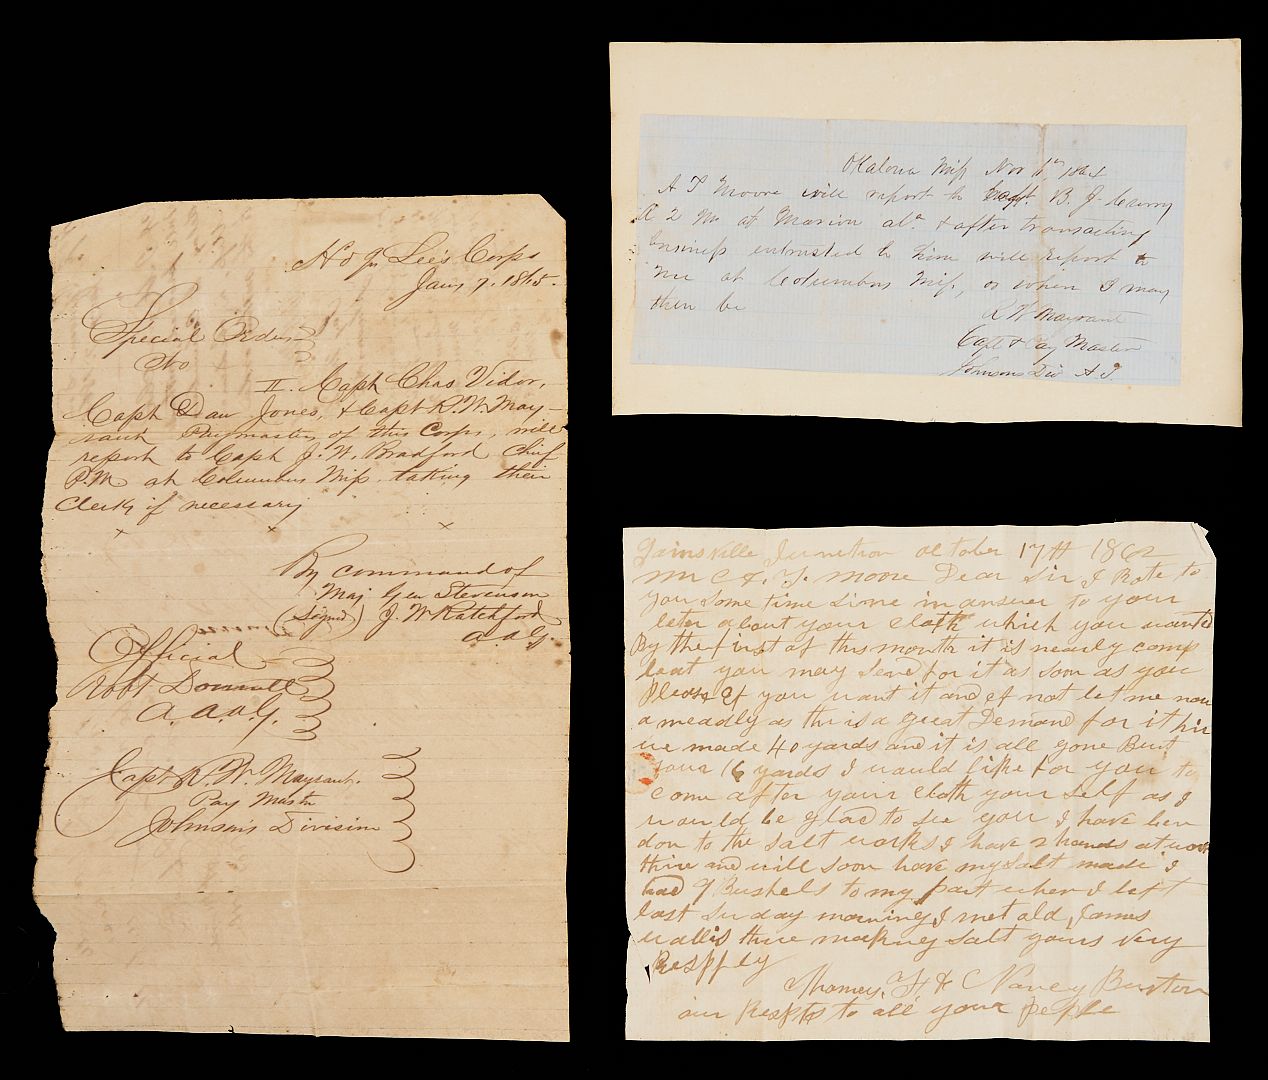 Hd Qrs Lee's Corps
Jany 7. 1865.
Special Orders
No
II. Capt Chas Vidor,
Capt Dan Jones, & Capt R. W. May-
rant Paymasters of this Corps, will
report to Capt J. H. Bradford Chief
P.M at Columbus Miss. taking their
Clerks if necessary
x x x
By command of
Maj Gen Stevenson
(Signed) J. W. Ratchford
A.A.G.
Official
Robt Donnell
A.A.A.G.
Capt R. W. Mayrant.
Pay Mastr
Johnson's Division
Okalona Miss Nov 1st 1864
A T Moore will report to Capt. B. J. Curry
A 2 M. at Marion ala. & after transacting
business entrusted to him will report to
me at Columbus Miss, or when I may
then be
R W Mayrant
Capt & Pay Master
Johnsons Div A. T.
Gainsville Junction October 17th 1862
Mr C & . Y. Moore Dear Sir I Rote to
you some time sinse in answer to your
leter about your cloth which you wanted
By the first of this month it is nearly comp
leat you may send for it as soon as you
Please If you want it and ef not let me now
ameadly as thir is a great Demand for it hir
we made 40 yards and it is all gone But
your 16 yards I would like for you to
come after your cloth your self as I
would be glad to see you I have ben
don to the salt works I have 2 hands at work
thire and will soon have my salt made I
had 9 Bushels to my part when I left
last Sunday morning I met old James
wallis thire making salt yours very
Respfley
Thomas. H & Nancy Burton
our Respts to all your people